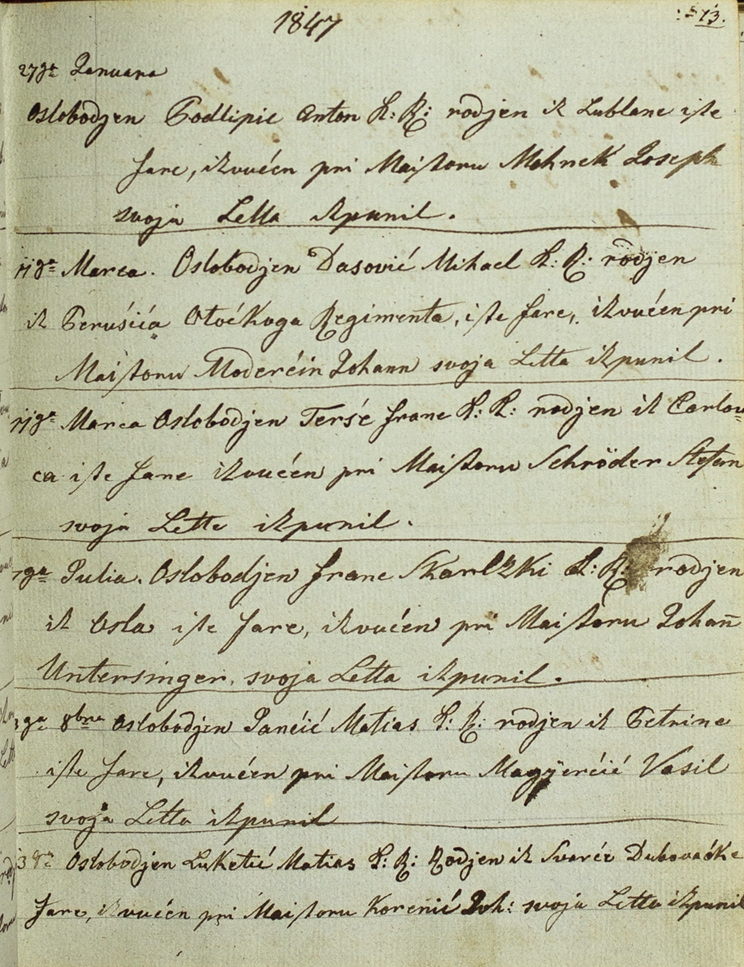 1847
13.
27ga Januara
Oslobodjen Podlipic Anton K: R: rodjen iz Lublane iste
fare, izvućen pri Maistoru Mohnek Joseph
svoja Letta izpunil.
11ga Marca. Oslobodjen Dasović Mihael K: R: rodjen
iz Perušića Otoćkoga Regimenta, iste fare, izvućen pri
Maistoru Moderćin Johann svoja Letta izpunil.
11ga Marca Oslobodjen Terše Franc K: R: rodjen iz Carlov=
ca iste fare izvućen pri Maistoru Schröder Stefan
svoja Letta izpunil.
7ga Julia. Oslobodjen Franc Skarlzki K: R: rodjen
iz Osla iste fare, izvućen pri Maistoru Johañ
Untersinger, svoja Letta izpunil.
3ga 8bra Oslobodjen Janćić Matias K: R: rodjen iz Petrine
iste fare, izvućen pri Maistoru Magyerćić Vasil
svoja Letta izpunil
3ga Oslobodjen Luketić Matias K: R: Rodjen iz Svarće Dubovaćke
fare, izvućen pri Maistoru Korenić Joh: svoja Letta izpunil